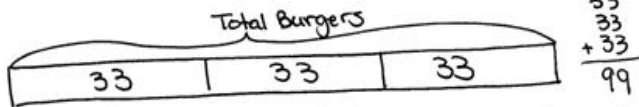 Total Burgers
33 33 33
33
33
+ 33
99